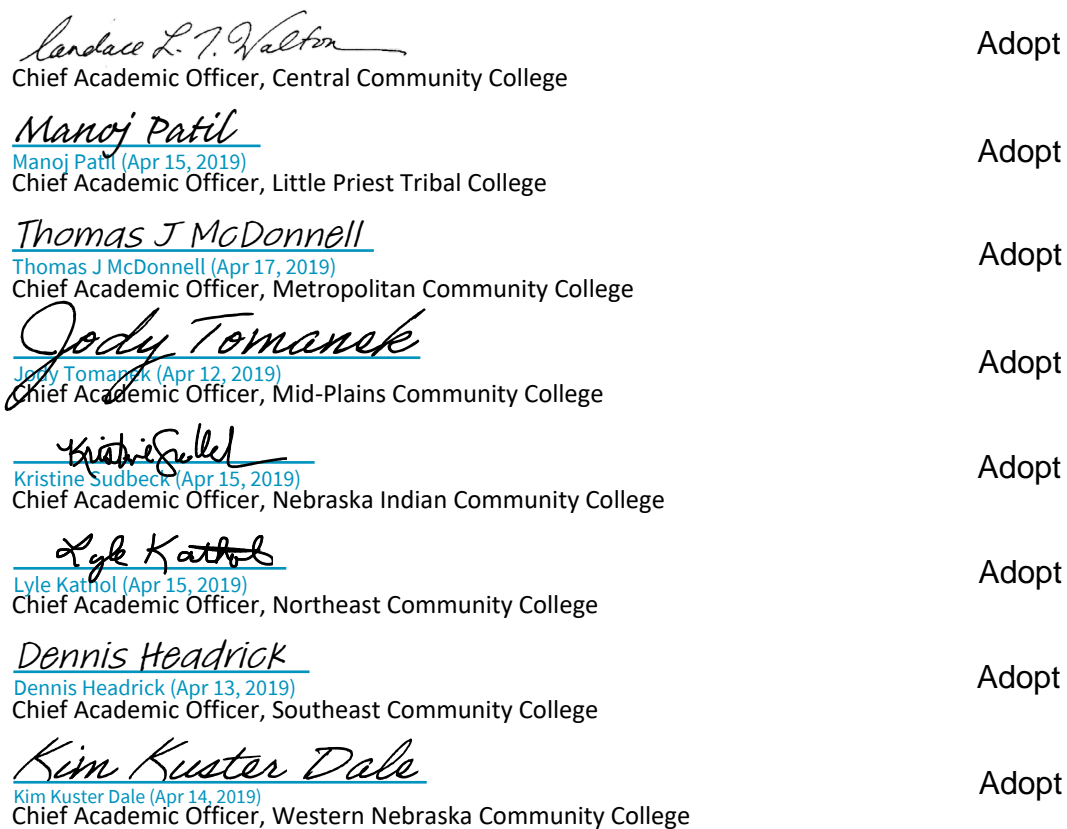 Candace L. T. Walton
Adopt
Chief Academic Officer, Central Community College
Manoj Patil
Adopt
Manoj Patil (Apr 15, 2019)
Chief Academic Officer, Little Priest Tribal College
Thomas J McDonnell
Adopt
Thomas J McDonnell (Apr 17, 2019)
Chief Academic Officer, Metropolitan Community College
Jody Tomanek
Adopt
Jody Tomanek (Apr 12, 2019)
Chief Academic Officer, Mid-Plains Community College
Adopt
Kristine Sudbeck (Apr 15, 2019)
Chief Academic Officer, Nebraska Indian Community College
Lyle Kathol
Adopt
Lyle Kathol (Apr 15, 2019)
Chief Academic Officer, Northeast Community College
Dennis Headrick
Adopt
Dennis Headrick (Apr 13, 2019)
Chief Academic Officer, Southeast Community College
Kim Kuster Dale
Adopt
Kim Kuster Dale (Apr 14, 2019)
Chief Academic Officer, Western Nebraska Community College